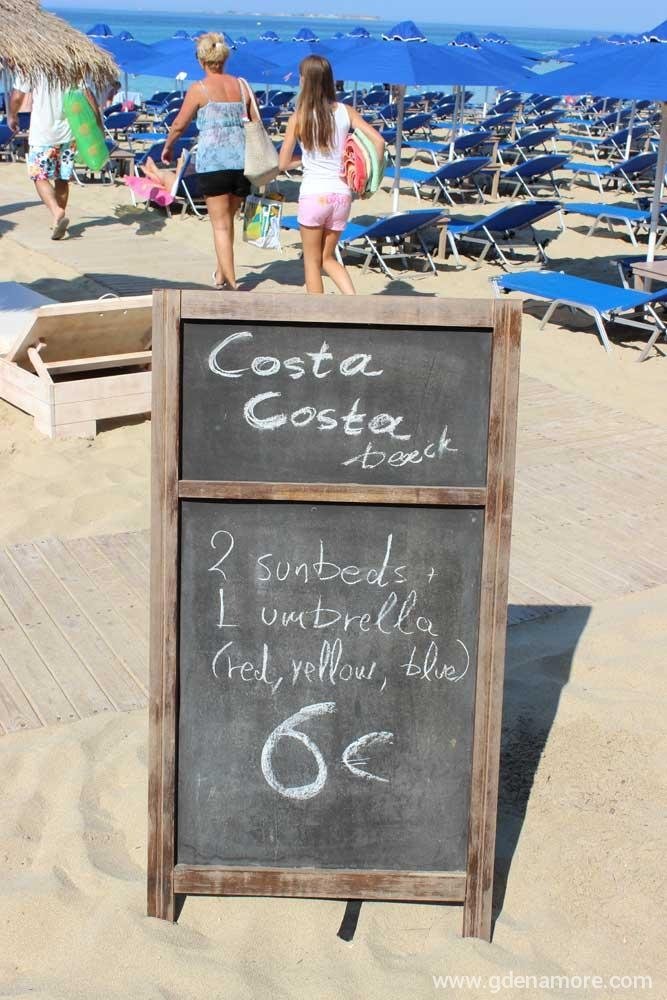 Costa
Costa
beack
2 sunbeds +
1 umbrella
(red, yellow, blue)
6 €
www.gdenamore.com